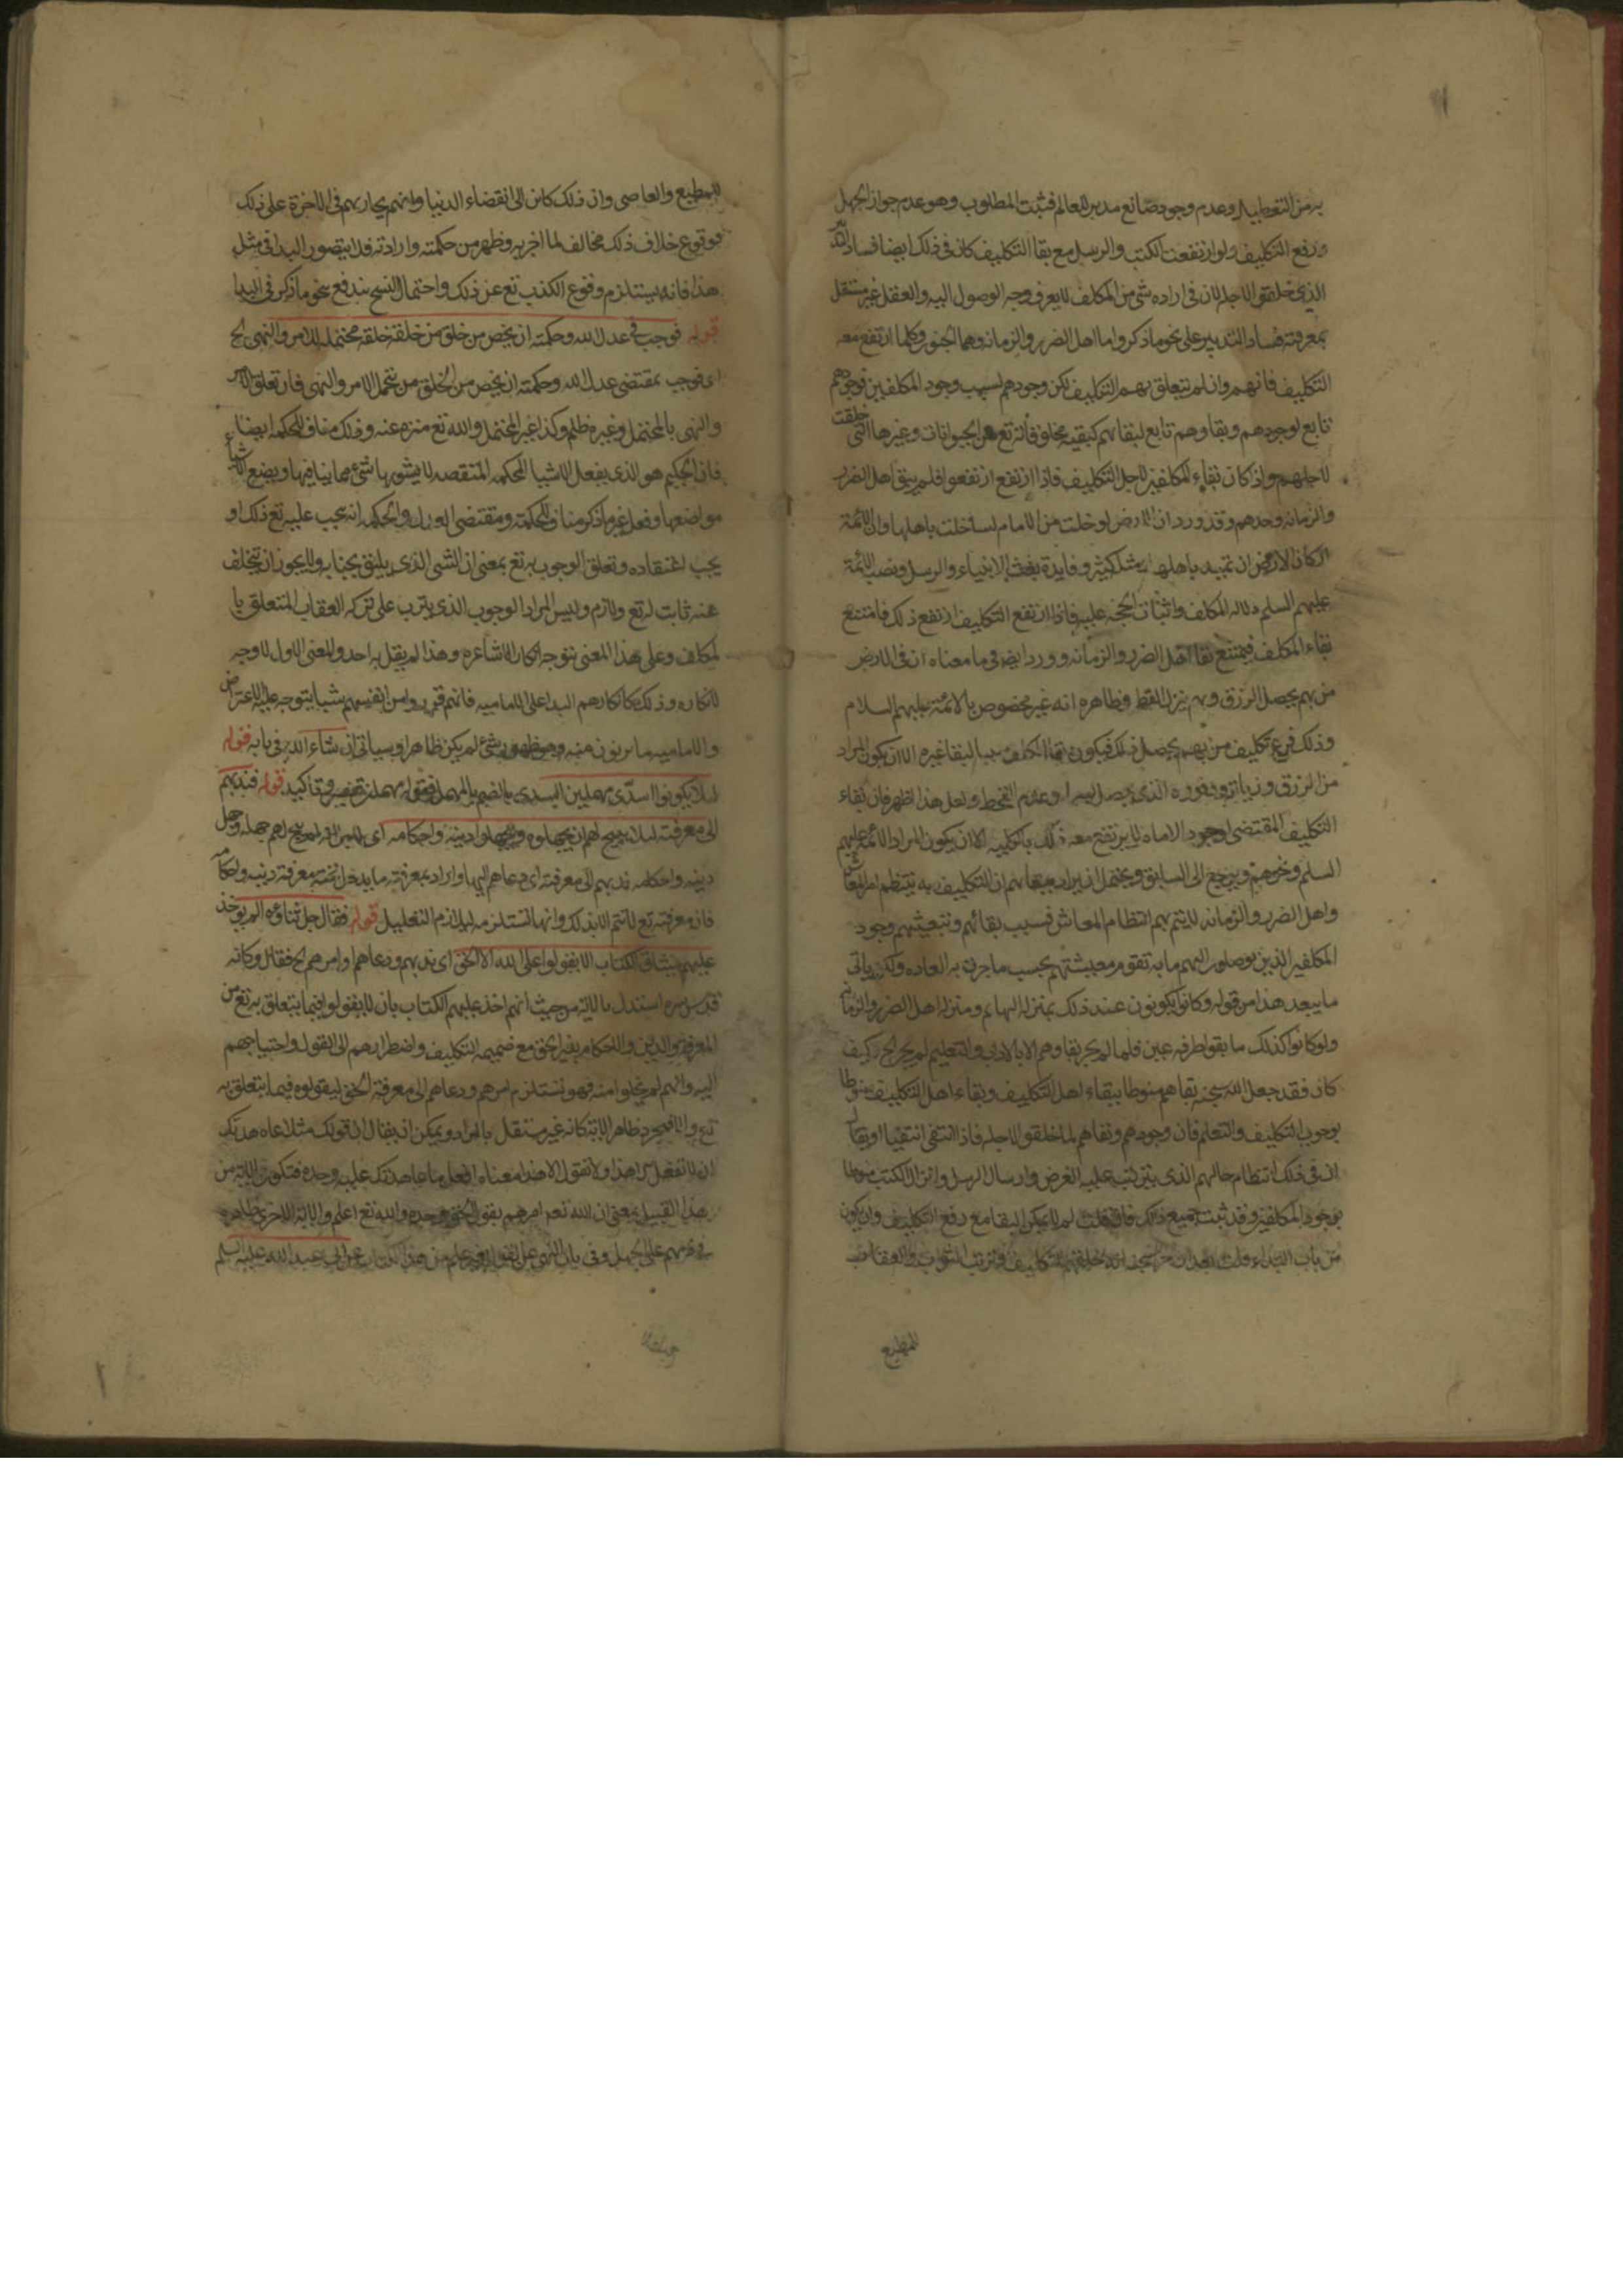 به من التعطيل وعدم وجود صانع مدبر للعالم فثبت المطلوب وهو عدم جواز الجهل
ورفع التكليف ولو ارتفعت الكتب والرسل مع بقا التكليف كان في ذلك ايضا فساد التدبير
الذي خلقوا لاجله لان في اراده شي من المكلف لا يعرف وجه الوصول اليه والعقل غير مستقل
بمعرفته فساد التدبير على نحو ما ذكر واما اهل الضرر والزمانه وهما الجنون وكلما ارتفع معه
التكليف فانهم وان لم يتعلق بهم التكليف لكن وجودهم لسبب وجود المكلفين فوجودهم
تابع لوجودهم وبقاوهم تابع لبقائهم كبقيه مخلوقاته تع من الحيوانات وغيرها التي خلقت
لاجلهم واذا كان بقاء المكلفين لاجل التكليف فاذا ارتفع ارتفعوا فلم يبق اهل الضرر
والزمانه وحدهم وقد ورد ان الارض لو خلت من الامام لساخت باهلها وان الائمة
اركان الارض ان تميد باهلها ومثله كثير وفايدة بعث الانبياء والرسل ونصب الائمة
عليهم السلم دلاله المكلف واثبات الحجه عليه فاذا ارتفع التكليف ارتفع ذلك فامتنع
بقاء المكلف فيمتنع بقا اهل الضرر والزمانه وورد ايضا في ما معناه ان في الارض
من بهم يحصل الرزق وبهم ينزل القطر وظاهره انه غير مخصوص بالائمة عليهم السلام
وذلك فرع تكليف من بهم يحصل ذلك فيكون بقا المكلف سببا لبقا غيره الا ان يكون المراد
من الرزق وزيادته ووفوره الذي يحصل يسرا وعدم القحط ولعل هذا اظهر فان بقاء
التكليف المقتضي لوجود الامام لا يرتفع معه ذلك بالكليه الا ان يكون المراد الائمة عليهم
السلم ونحوهم ويرجع الى السابق ويحتمل ان يراد ببقائهم ان التكليف به ينتظم امر المعاش
واهل الضرر والزمانه لا يتم بهم انتظام المعاش فسبب بقائهم وتبعيتهم وجود
المكلفين الذين يوصلون اليهم ما به تقوم معيشتهم بحسب ما جرت به العاده ولكن ياتي
ما يبعد هذا من قوله وكانوا يكونون عند ذلك بمنزله البهايم ومنزله اهل الضرر والزمانه
ولو كانوا كذلك ما بقوا طرفه عين فلما لم يجز بقاوهم الا بالادب والتعليم لم يجز الخ كيف
كان فقد جعل الله سبحنه بقاهم منوطا ببقاء اهل التكليف وبقاء اهل التكليف منوطا
بوجوب التكليف والتعلم فان وجودهم وبقاهم لما خلقوا لاجله فاذا انتفى انتفيا او يقال
ان في ذلك انتظام حالهم الذي يترتب عليه الغرض وارسال الرسل وانزال الكتب منوطا
بوجود المكلفين وقد ثبت جميع ذلك فان قلت لم لا يمكن البقا مع رفع التكليف وان يكون
من باب البداء قلت بعد ان خلقهم للتكليف وترتب الثواب والعقاب
للمطيع
للمطيع والعاصي وان ذلك كان الى انقضاء الدنيا وانهم يجازيهم في الاخرة على ذلك
فوقوع خلاف ذلك مخالف لما اخبر به وظهر من حكمته وارادته فلا يتصور البدا في مثل
هذا فانه يستلزم وقوع الكذب تع عن ذلك واحتمال النسخ يندفع بنحو ما ذكر في البدا
قوله فوجب في عدل الله وحكمته ان يخص من خلق من خلقه خلقه محتمله للامر والنهي الخ
اي فوجب بمقتضى عدل الله وحكمته ان يخص من الخلق من يتحمل الامر والنهي فان تعلق الامر
والنهي بالمحتمل وغيره ظلم وكذا غير المحتمل والله تع منزه عنه وذلك مناف للحكمه ايضا
فان الحكيم هو الذي يفعل الاشيا المحكمه المتقنه لا يشوبها شيء مما ينافيها ويضع الاشياء
مواضعها وفعل غير ما ذكر مناف للحكمة ومقتضى العدل والحكمه انه يجب عليه تع ذلك او
يجب اعتقاده وتعلق الوجوب به تع بمعنى ان الشي الذي يليق بجنابه ولا يجوز ان يتخلف
عنه ثابت له تع ولازم وليس المراد الوجوب الذي يترتب على تركه العقاب المتعلق با
لمكلف وعلى هذا المعنى يتوجه انكار الاشاعره وهذا لم يقل به احد والمعنى الاول لا وجه
لانكاره وذلك كانكارهم البدا على الاماميه فانهم قرروا من انفسهم شيا يتوجه عليه الاعتراض
والاماميه ما يريدون منه وهو ظهور شيء لم يكن ظاهرا وسياتي ان شاء الله في بابه قوله
لئلا يكونوا سدى مهملين السدى بالضم المهمل فقوله مهملين تفسير وتاكيد قوله فندبهم
الى معرفته لئلا يبيح لهم ان يجهلوه ويجهلوا دينه واحكامه اي لاجل انه لم يبح لهم جهله وجهل
دينه واحكامه ندبهم الى معرفته اي دعاهم اليها واراد بمعرفته ما يدخل تحته معرفة دينه واحكامه
فان معرفته تع لا تتم الا بذلك وانها تستلزمه ليلازم التعليل قوله فقال جل ثناوه الم يوخذ
عليهم ميثاق الكتاب الا يقولوا على الله الا الحق اي ندبهم ودعاهم وامرهم الخ فقال وكانه
قدس سره استدل بالاية من حيث انهم اخذ عليهم الكتاب بان لا يقولوا فيما يتعلق به تع من
المعرفة والدين والاحكام بغير الحق مع ضميمه التكليف واضطرارهم الى القول واحتياجهم
اليه وانهم لم يخلوا منه فهو يستلزم امرهم ودعاهم الى معرفة الحق ليقولوه فيما يتعلق به
تع والا فمجرد ظاهر الاية كانه غير مستقل بالمراد ويمكن ان يقال ان قولك مثلا عاهدتك
ان لا تفعل الا هذا ولا تقول الا هذا معناه افعل ما عاهدتك عليه وحده فتكون الاية من
هذا القبيل بمعنى ان الله تعه امرهم بقول الحق وحده والله تع اعلم والاية الاخرى ظاهره
في ذمهم على الجهل وفي باب النهي عن القول بغير علم من هذا الكتاب عن ابي عبد الله عليه السلم